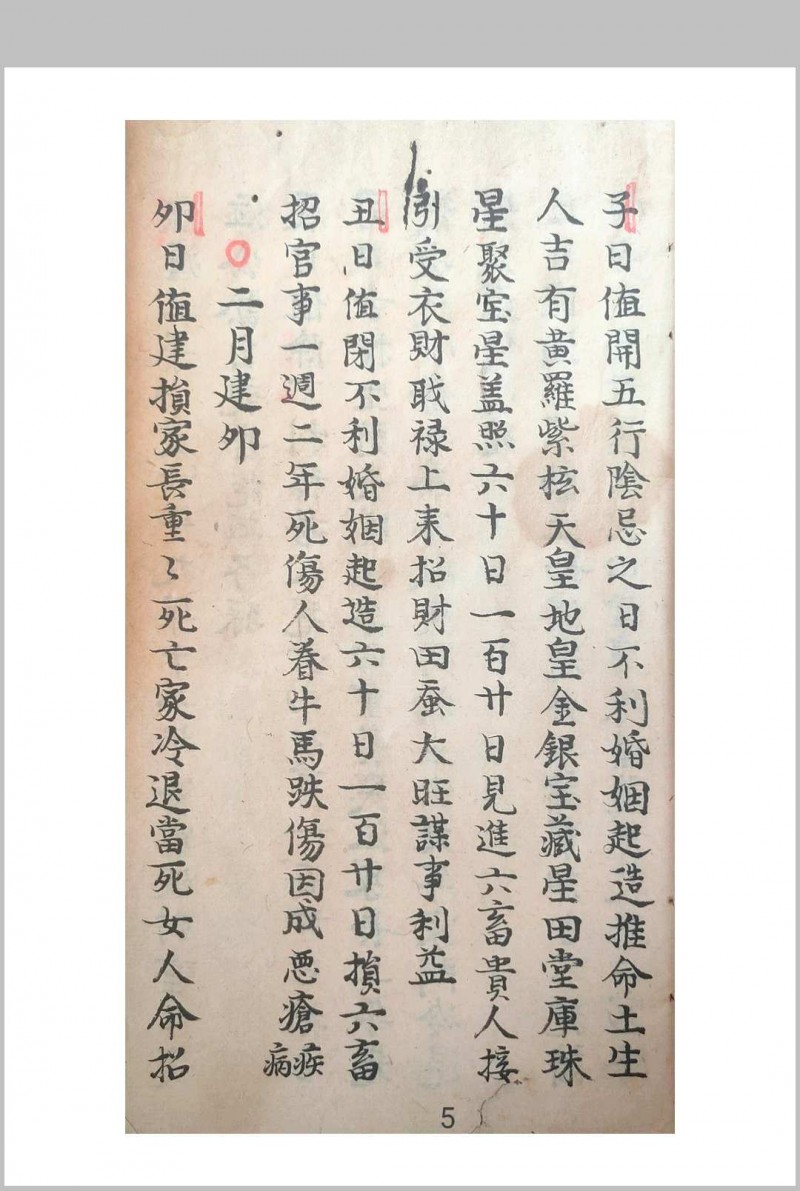 子日值開五行陰忌之日不利婚姻起造推命土生
人吉有黄羅紫桉天皇地皇金銀宝藏星田堂庫珠
星聚宝星盖照六十日一百廿日見進六畜貴人接
引受衣財戢禄上耒招財田蚕大旺謀事利益
丑日值閉不利婚姻起造六十日一百廿日損六畜
招官事一週二年死傷人眷牛馬跌傷因成悪瘡疾病
二月建卯
卯日值建損家長重〻死亡家冷退當死女人命招
5